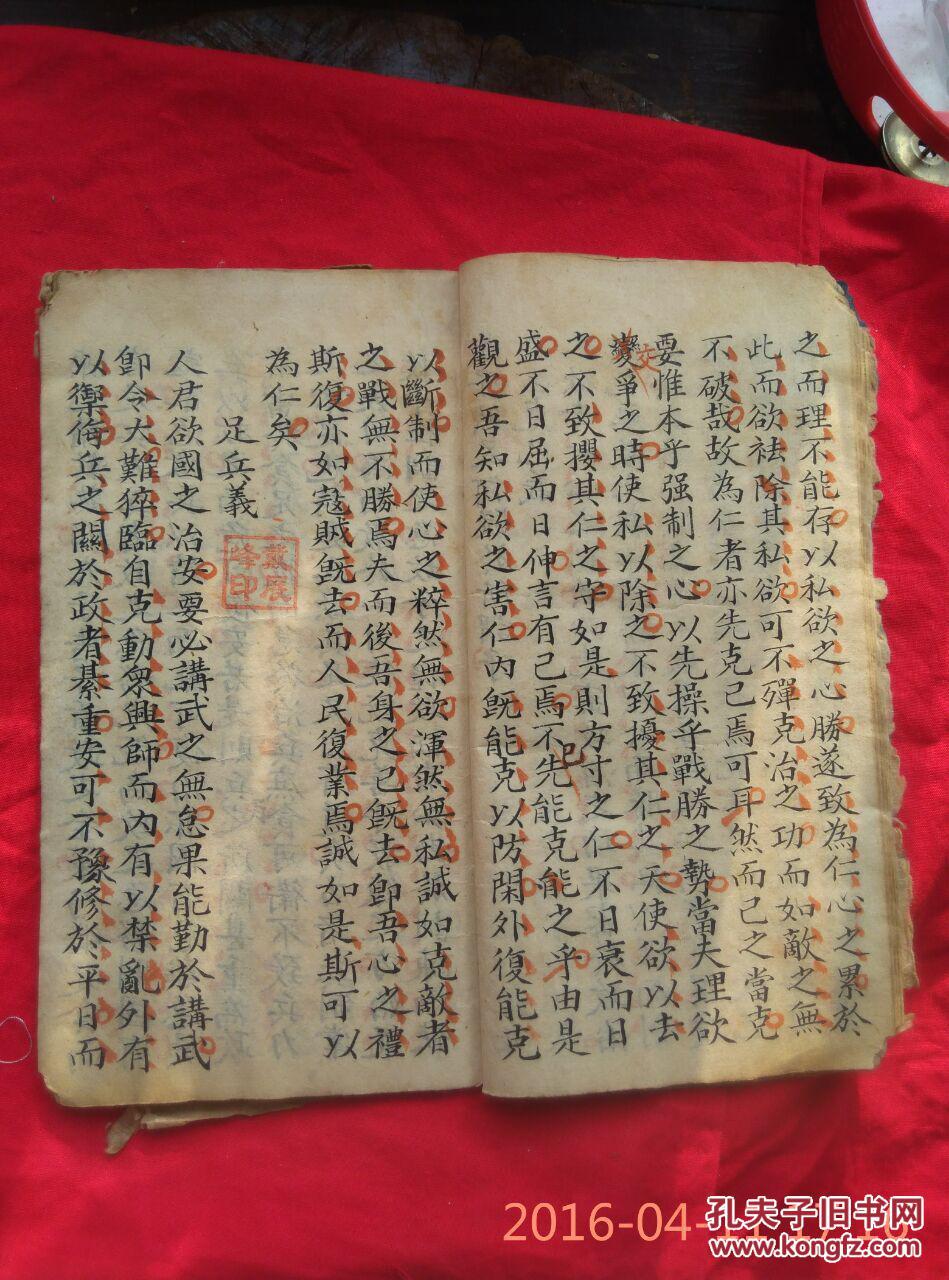 之而理不能存以私欲之心勝遂致為仁心之累於
此而欲祛除其私欲可不殫克治之功而如敵之無
不破哉故為仁者亦先克己焉可耳然而己之當克
要惟本乎强制之心以先操乎戰勝之勢當夫理欲
交爭之時使私以除之不致擾其仁之天使欲以去
之不致攖其仁之守如是則方寸之仁不日衰而日
盛不日屈而日伸言有己焉不先能克能之乎由是
己
觀之吾知私欲之害仁內既能克以防閑外復能克
以斷制而使心之粹然無欲渾然無私誠如克敵者
之戰無不勝焉夫而後吾身之已既去卽吾心之禮
斯復亦如寇賊既去而人民復業焉誠如是斯可以
為仁矣
足兵義
戴展
峰印
人君欲國之治安要必講武之無怠果能勤於講武
卽令大難猝臨自克動衆興師而內有以禁亂外有
以禦侮兵之關於政者綦重安可不豫修於平日而
2016-04-11 17:16
孔夫子旧书网
www.kongfz.com